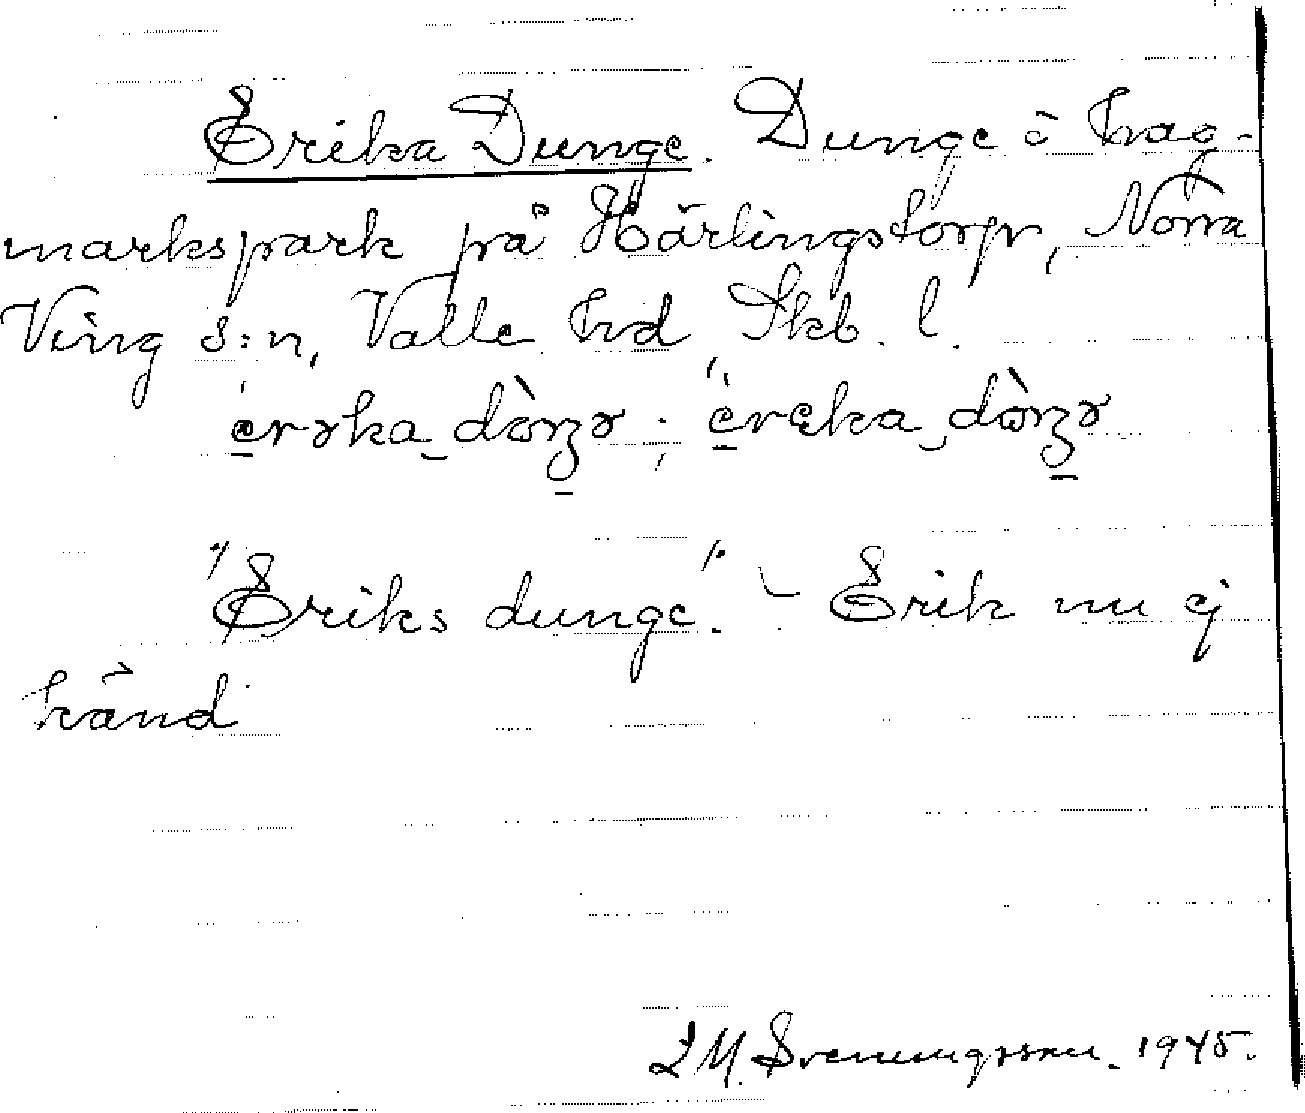 Erika Dunge. Dunge i hag-
markspark på Härlingstorp, Norra
Ving s:n, Valle hd Skb. l.
"Eriks dunge". - Erik nu ej
känd
Svenungsson. 1945.